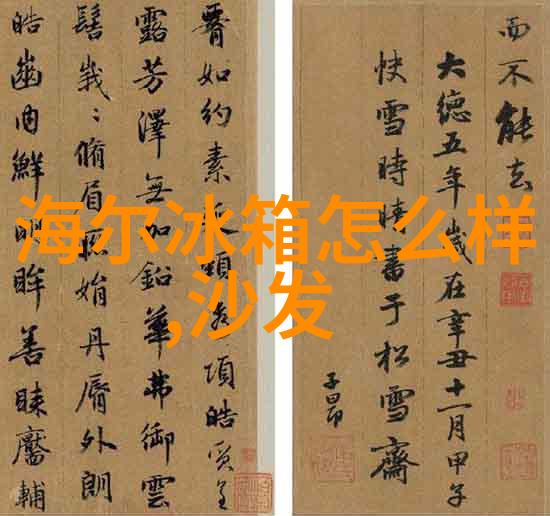 如約素延頸秀項皓質呈
露芳澤無加鉛華弗御雲
髻峩〻脩眉聯娟丹脣外朗
皓齒内鮮明眸善睞靨輔
而不能去
大德五年歲在辛丑十一月甲子
快雪時晴書于松雪齋
子昂
海尔冰箱怎么样
,沙发